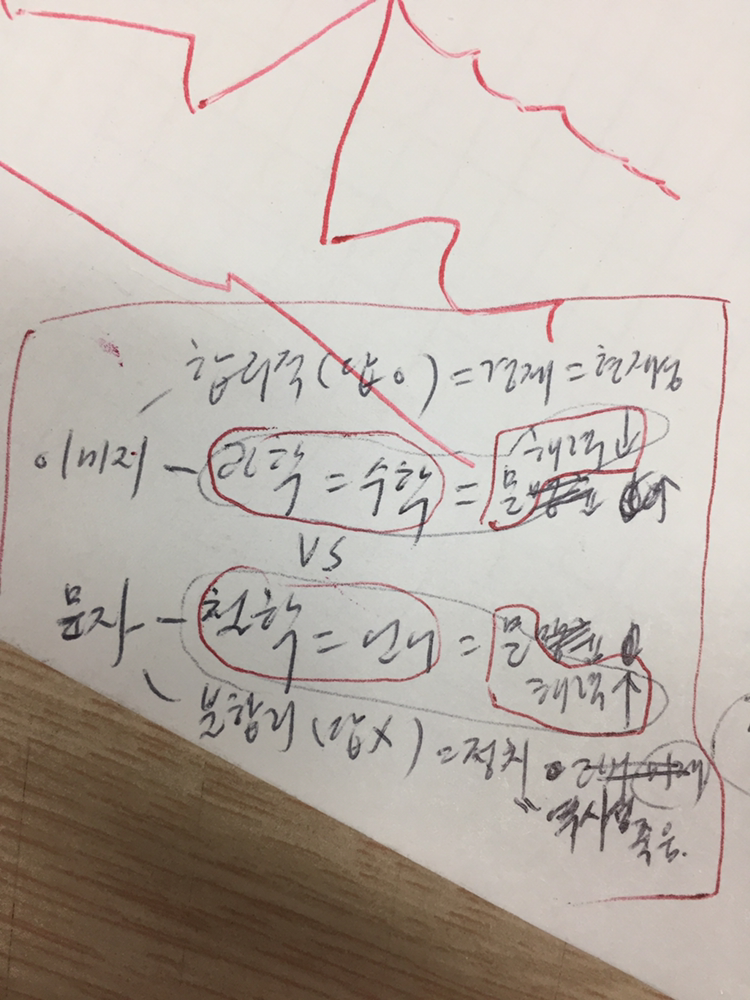 합리적(답ㅇ) = 경제 = 현재성
해력↓
이미지 - 과학 = 수학 = 물 ↑
VS
문자 - 철학 = 언어 = 물
해력↑
불합리(답X) = 정치
= 역사성
죽음.